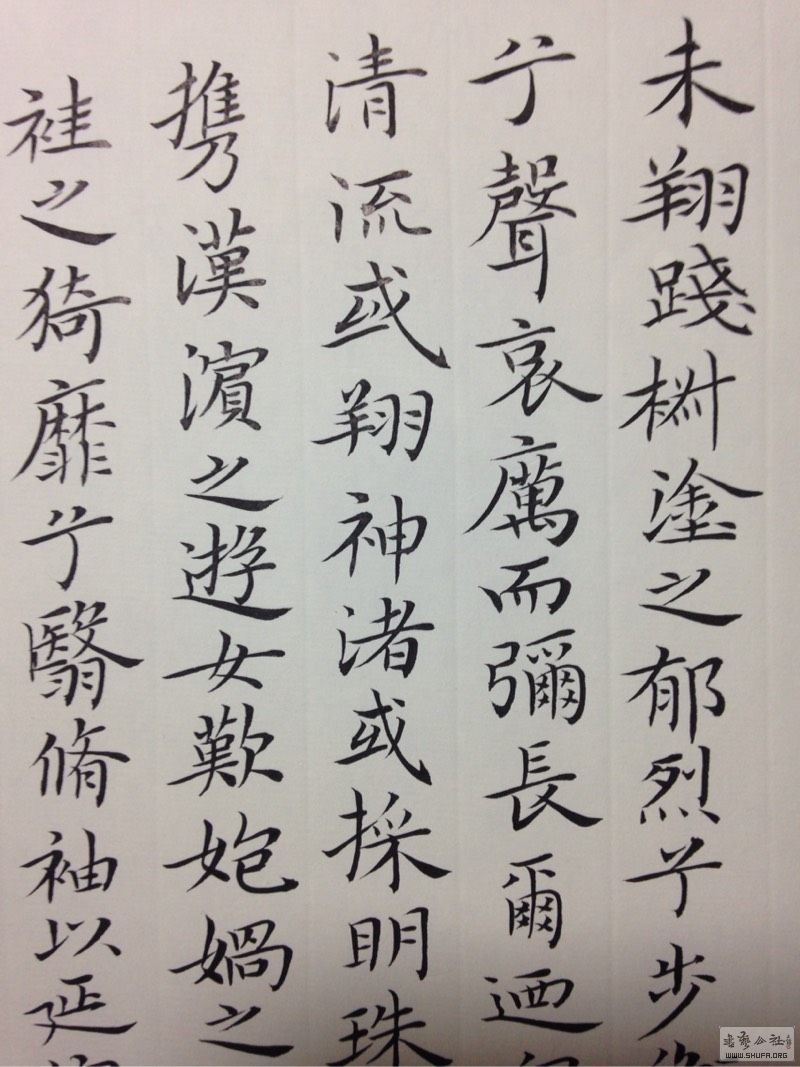 未翔踐椒塗之郁烈兮步
兮聲哀厲而彌長爾迺
清流或翔神渚或採明珠
携漢濱之遊女歎媧之
袿之猗靡兮翳脩袖以延
書藝公社
WWW.SHUFA.ORG